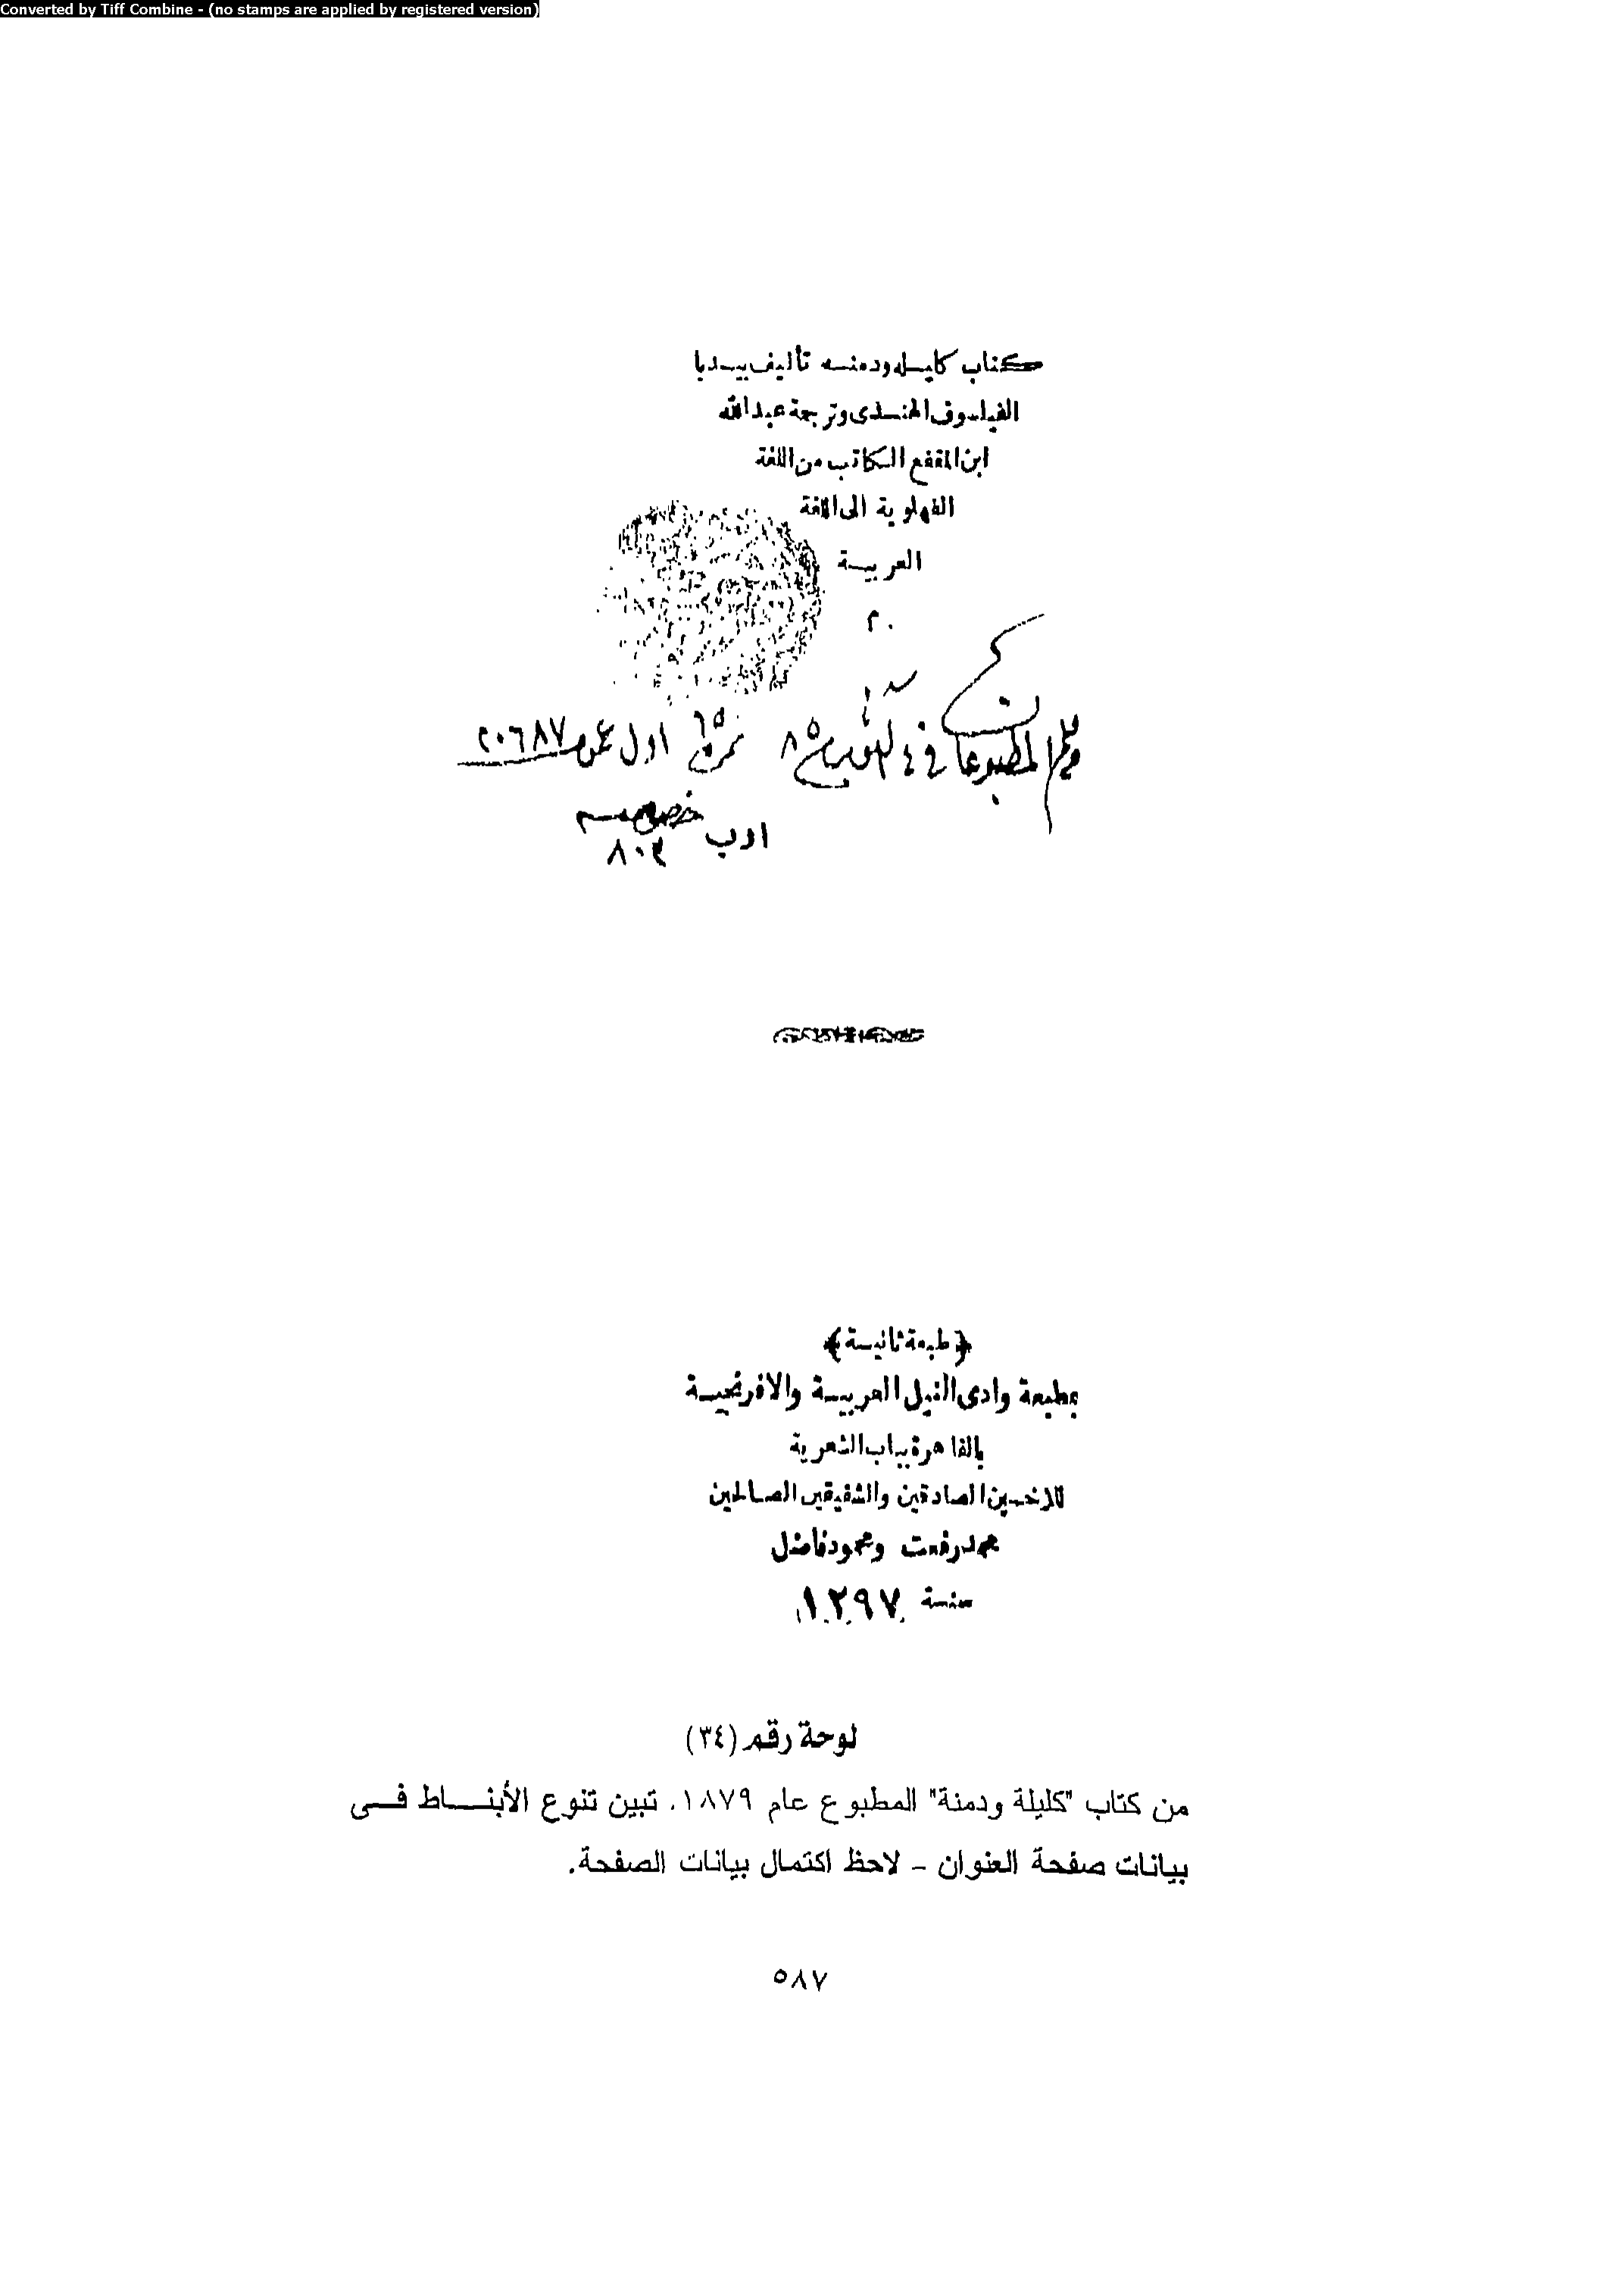 Converted by Tiff Combine - (no stamps are applied by registered version)
كتاب كليله ودمنه تأليف بيدبا
الفيلسوف الهندى وترجمة عبدالله
ابن المقفع الكاتب من اللغة
الفهلوية الى اللغة
العربية
م
المطبوعات فى ٤ اكتوبر ٨٥ نمرة ٦٥ اول ٢٠٦٨٧
ادب
٨٠٣
﴿طبعة ثانية﴾
بمطبعة وادى النيل العربية والافرنجية
بالقاهرة بباب الشعرية
للاخوين الصادقين والشفيقين الصالحين
محمد رفعت ومحمود فاضل
سنة ١٢٩٧
لوحة رقم (٣٤)
من كتاب "كليلة ودمنة" المطبوع عام ١٨٧٩. تبين تنوع الأبنـــاط فـــى
بيانات صفحة العنوان - لاحظ اكتمال بيانات الصفحة.
٥٨٧